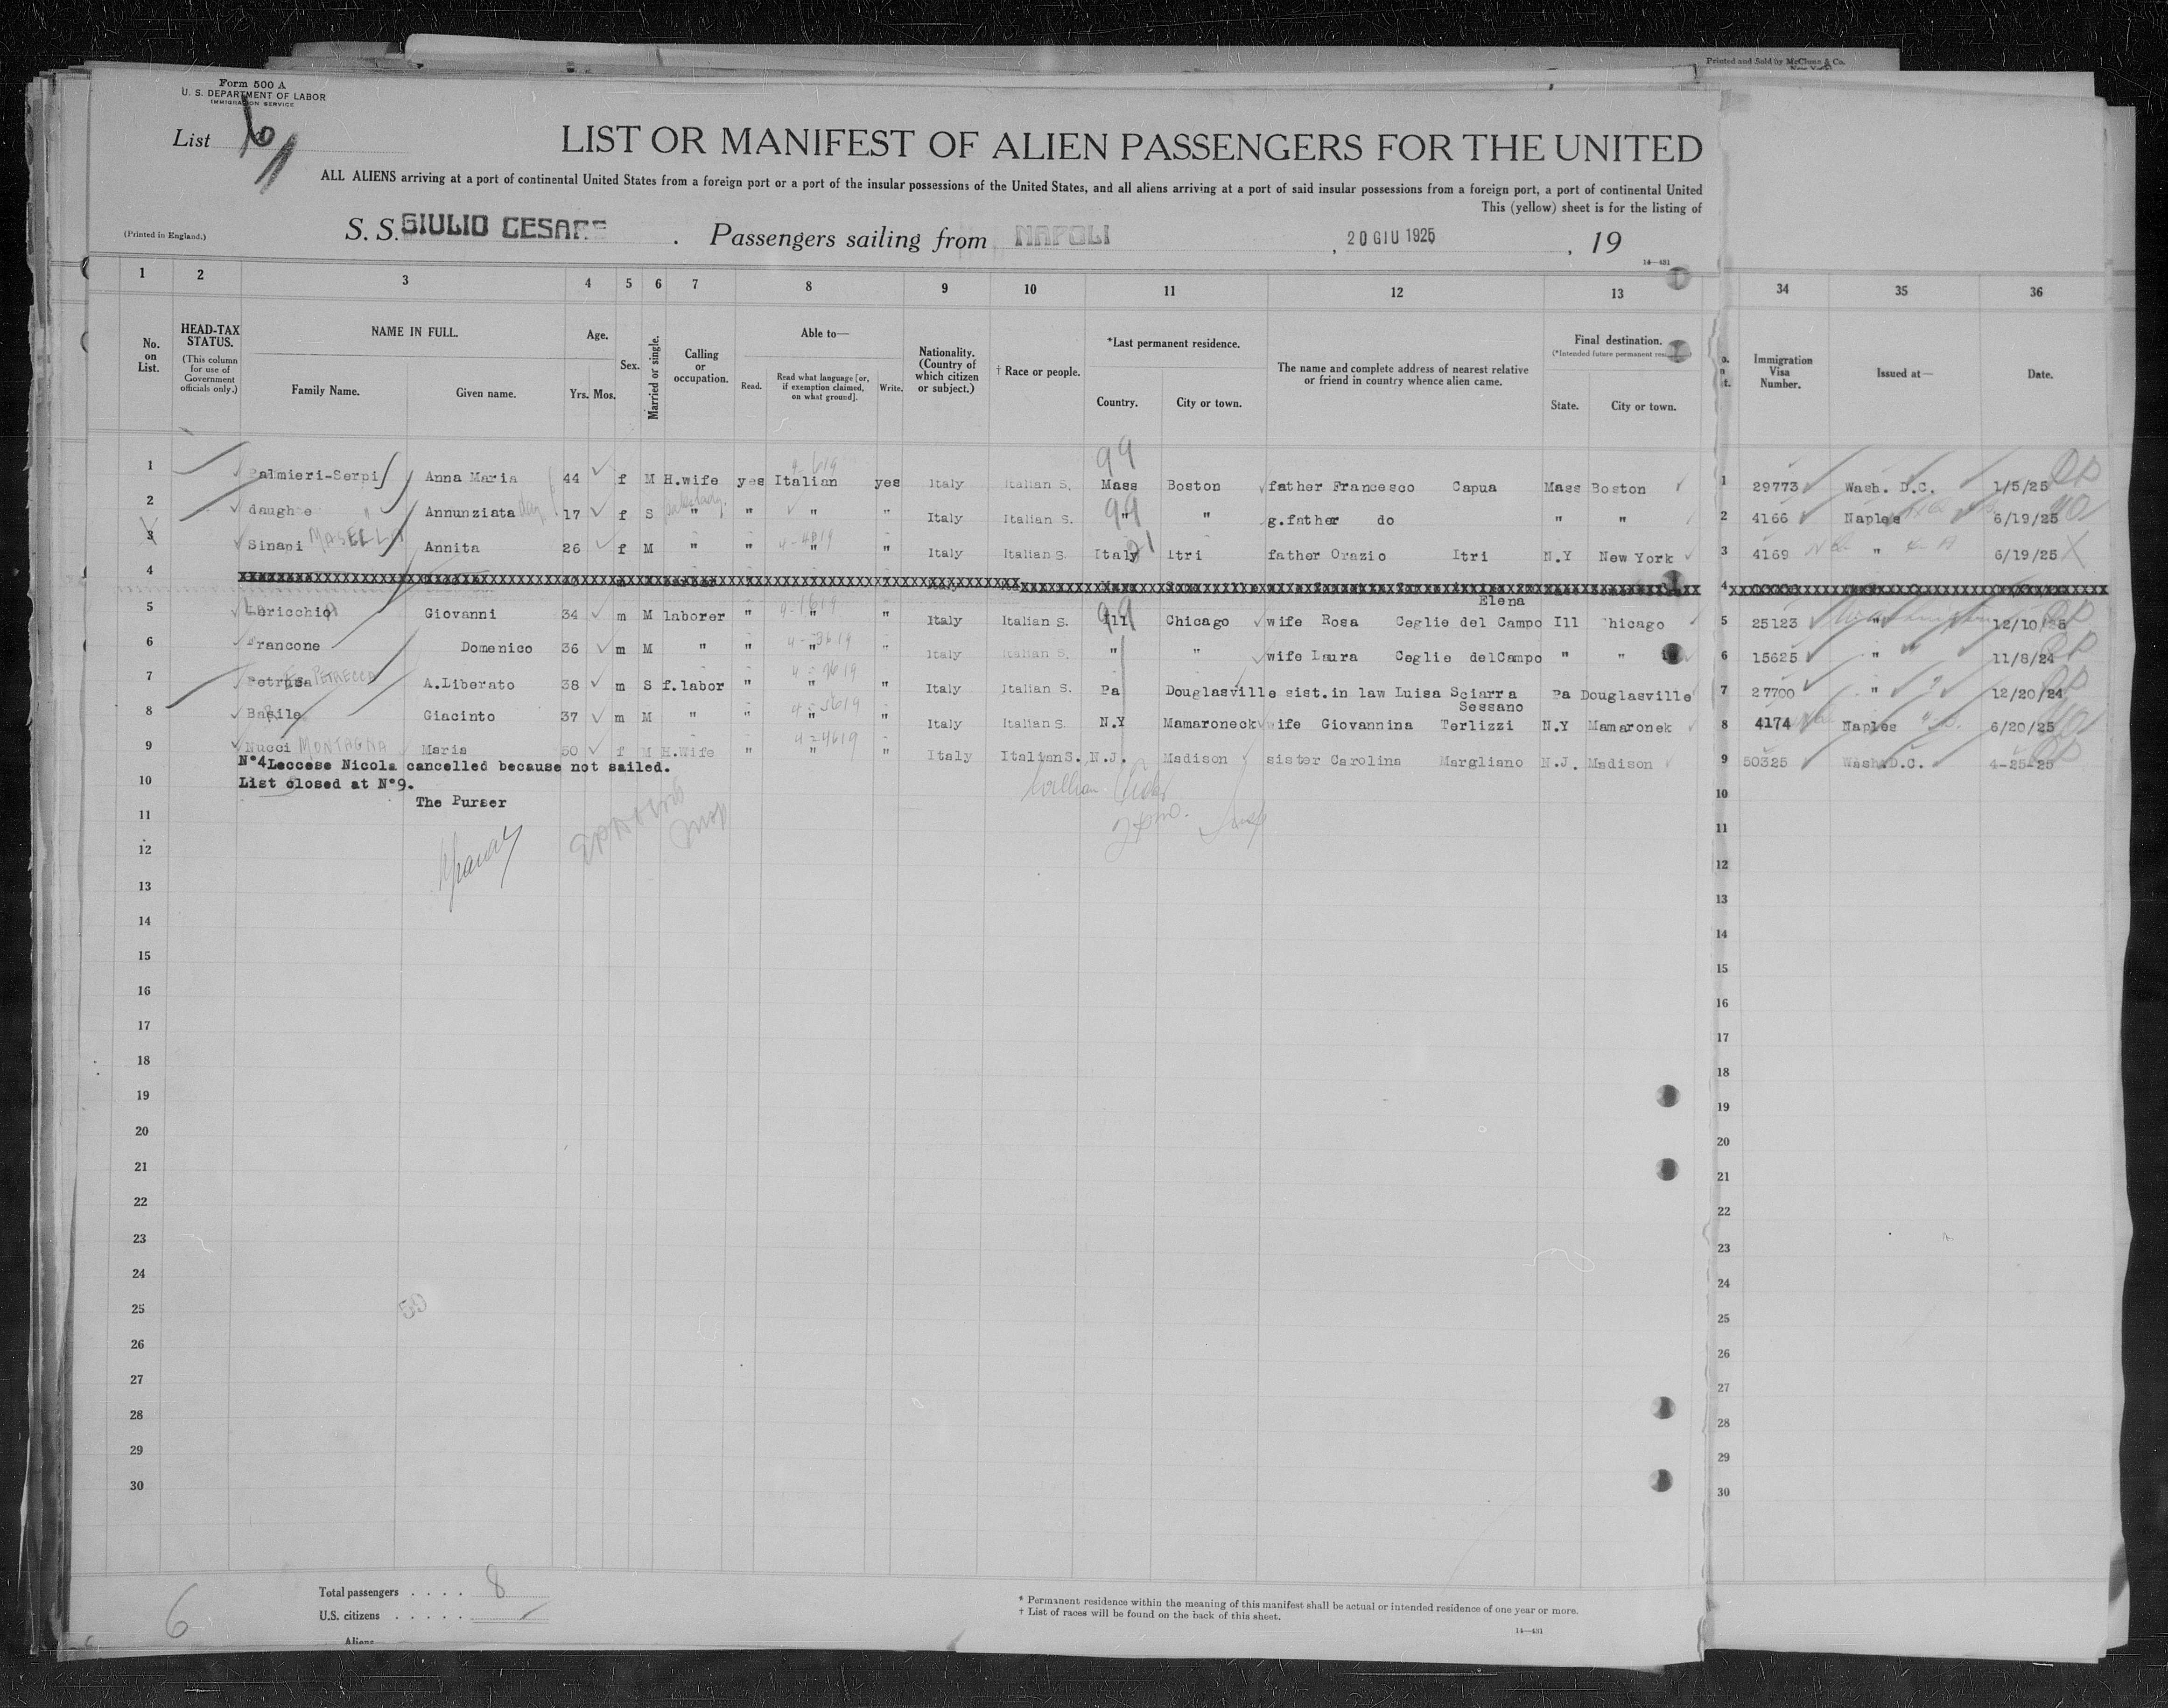 Printed and Sold by McClunn & Co.
Form 500 A
U. S. DEPARTMENT OF LABOR
IMMIGRATION SERVICE
List
LIST OR MANIFEST OF ALIEN PASSENGERS FOR THE UNITED
ALL ALIENS arriving at a port of continental United States from a foreign port or a port of the insular possessions of the United States, and all aliens arriving at a port of said insular possessions from a foreign port, a port of continental United
This (yellow) sheet is for the listing of
(Printed in England.)
S. S. GIULIO CESARE . Passengers sailing from NAPOLI , 20 GIU 1925 , 19
14—431
1 2 3 4 5 6 7 8 9 10 11 12 13 34 35 36
No. on List.
HEAD-TAX STATUS.
(This column for use of Government officials only.)
NAME IN FULL.
Family Name. Given name.
Age.
Yrs. Mos.
Sex.
Married or single.
Calling or occupation.
Able to—
Read. Read what language [or, if exemption claimed, on what ground]. Write.
Nationality. (Country of which citizen or subject.)
† Race or people.
*Last permanent residence.
Country. City or town.
The name and complete address of nearest relative or friend in country whence alien came.
Final destination.
(*Intended future permanent
State. City or town.
Immigration Visa Number.
Issued at—
Date.
1 Palmieri-Serpi Anna Maria 44 f M H.wife yes Italian yes Italy Italian S. Mass Boston father Francesco Capua Mass Boston 1 29773 Wash. D.C. 1/5/25
2 daugh e " Annunziata 17 f S " " " " Italy Italian S. " " g.father do " " 2 4166 Naples 6/19/25
3 Sinapi MASELLA Annita 26 f M " " " " Italy Italian S. Italy Itri father Orazio Itri N.Y New York 3 4169 " 6/19/25
4 4
Elena
5 Loricchio Giovanni 34 m M laborer " " " Italy Italian S. Ill Chicago wife Rosa Ceglie del Campo Ill Chicago 5 25123 " 12/10/
6 Francone Domenico 36 m M " " " " Italy Italian S. " " wife Laura Ceglie delCampo " " 6 15625 " 11/8/24
7 PETRECCA A.Liberato 38 m S f.labor " " " Italy Italian S. Pa Douglasville sist.in law Luisa Sciarra Pa Douglasville 7 27700 " 12/20/24
Sessano
8 Basile Giacinto 37 m M " " " " Italy Italian S. N.Y Mamaroneck wife Giovannina Terlizzi N.Y Mamaronek 8 4174 Naples 6/20/25
9 Nucci MONTAGNA Maria 50 f M H.Wife " " " Italy Italian S. N.J. Madison sister Carolina Margliano N.J. Madison 9 50325 Wash.D.C. 4-25-25
N°4Leccese Nicola cancelled because not sailed.
10 List closed at N°9. 10
The Purser
11 11
12 12
13 13
14 14
15 15
16 16
17 17
18 18
19 19
20 20
21 21
22 22
23 23
24 24
25 25
59
26 26
27 27
28 28
29 29
30 30
6
Total passengers . . . . 8
U.S. citizens . . . . .
Aliens
* Permanent residence within the meaning of this manifest shall be actual or intended residence of one year or more.
† List of races will be found on the back of this sheet.
14—431